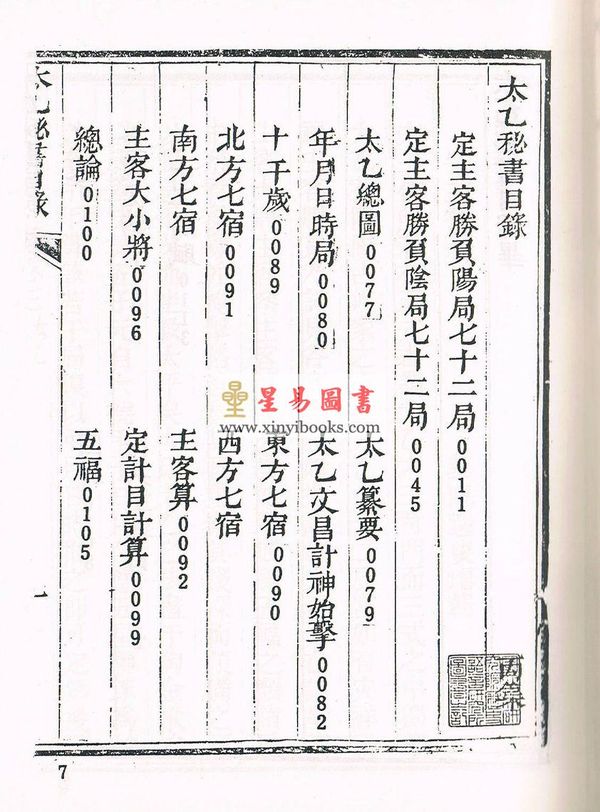 太乙秘書目錄
丙集
定主客勝負陽局七十二局0011
定主客勝負陰局七十二局0045
太乙總圖0077
太乙纂要0079
年月日時局0080
太乙文昌計神始擊0082
十千歲0089
東方七宿0090
北方七宿0091
西方七宿
南方七宿
主客算0092
主客大小將0096
定計目計算0099
總論0100
五福0105
太乙秘書目錄
一
7
星易圖書
www.xinyibooks.com